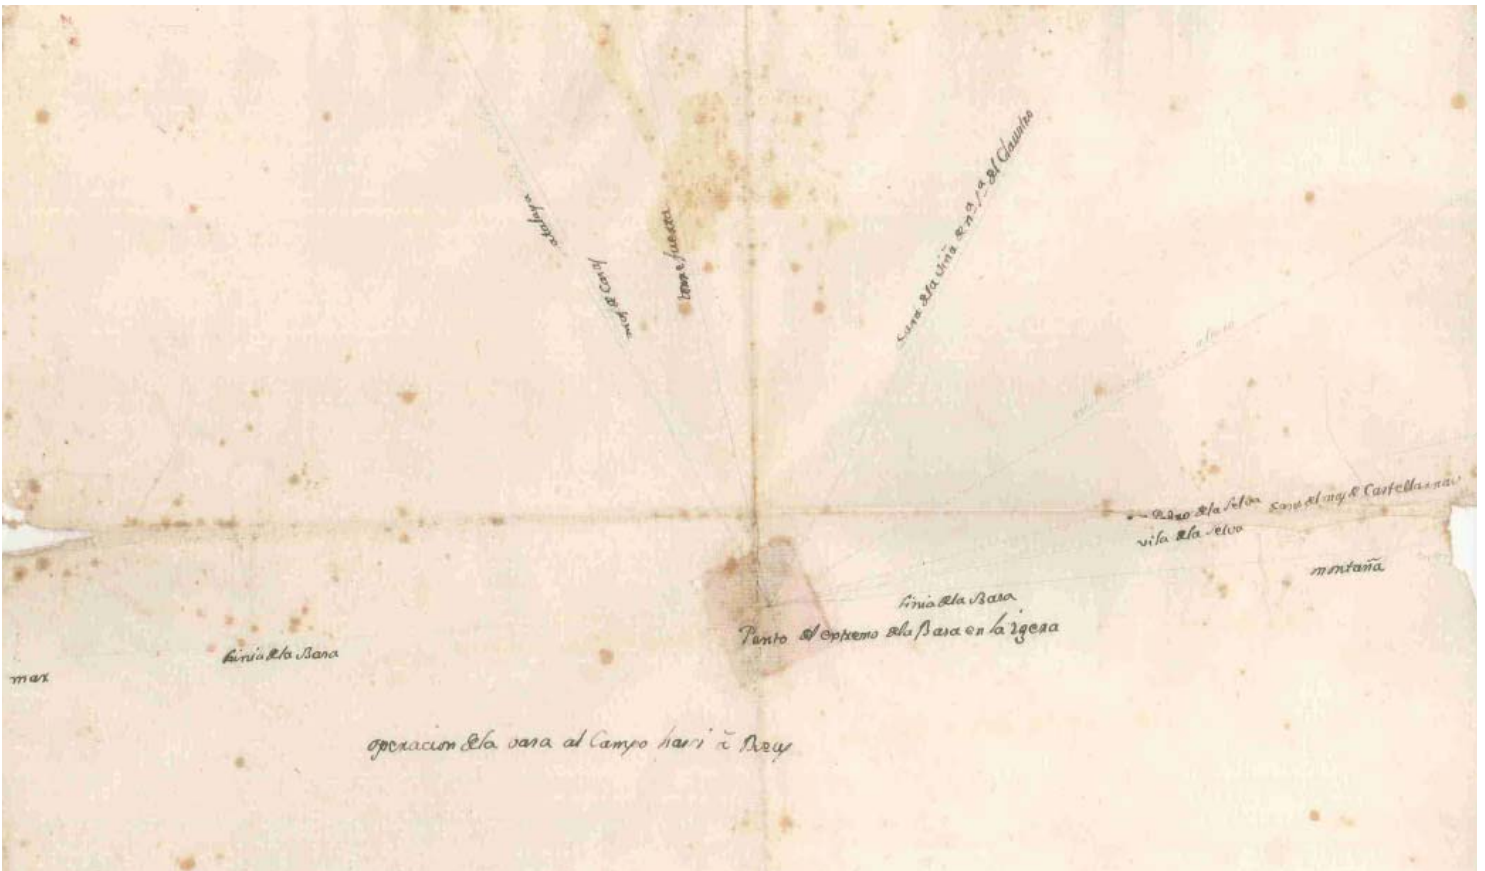 atalaya
mas de Caral
torre fuerta
Casa de la viña de nª sª del Claustro
Pedro de la Selva
Casa del mas de Castellarnau
vila de la selva
montaña
Linia de la Basa
Punto del extremo de la Basa en la
Linia de la Basa
mar
operacion de la vasa al Campo